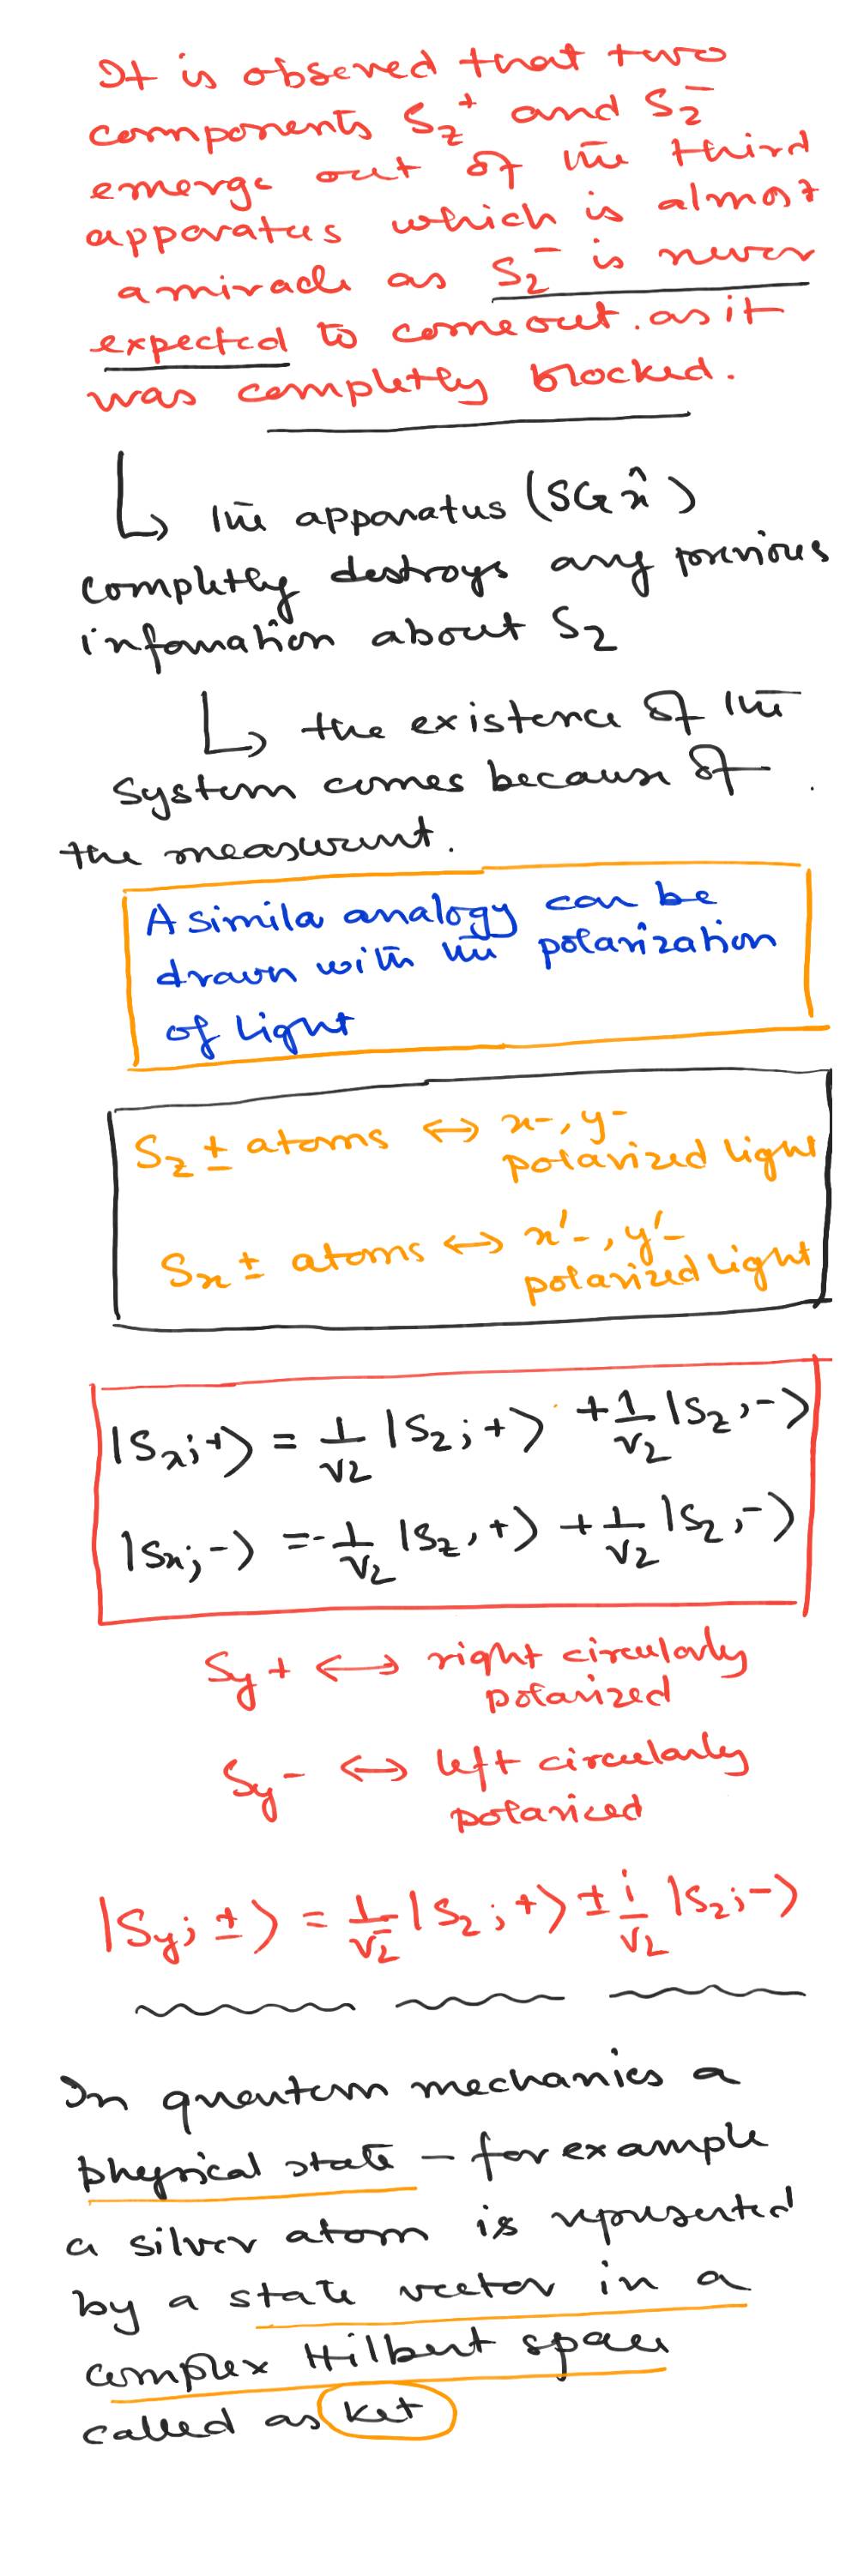 It is observed that two
components Sz+ and Sz-
emerge out of the third
apparatus which is almost
a miracle as Sz- is never
expected to come out. as it
was completly blocked.
↳ the apparatus (SG x̂)
completly destroys any previous
infomation about Sz
↳ the existence of the
system comes because of
the measurement.
A simila analogy can be
drawn with the polarization
of light
Sz ± atoms ↔ x-, y-
polarized light
Sx ± atoms ↔ x'-, y'-
polarized light
|Sx;+> = 1/√2 |Sz;+> + 1/√2 |Sz,->
|Sx;-> = -1/√2 |Sz,+> + 1/√2 |Sz,->
Sy+ ↔ right circularly
polarized
Sy- ↔ left circularly
polarized
|Sy;±> = 1/√2 |Sz;+> ± i/√2 |Sz;->
In quantum mechanics a
physical state - for example
a silver atom is represented
by a state vector in a
complex Hilbert space
called as ket